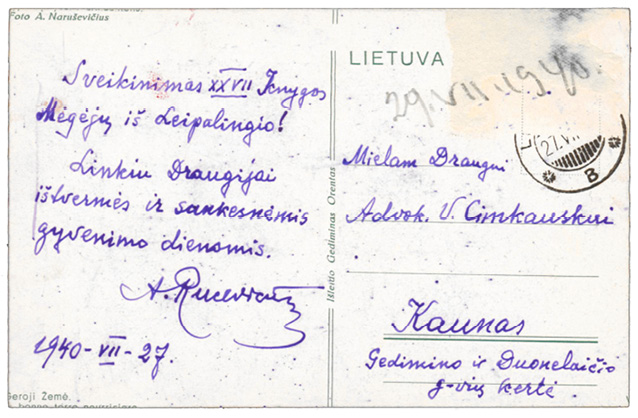 Foto A. Naruševičius
Sveikinimas XXVII Knygos
Mėgėjų iš Leipalingio!
Linkiu Draugijai
ištvermės ir sunkesnėmis
gyvenimo dienomis.
1940-VII-27.
Geroji Žemė.
Išleito Gediminas Orentas
LIETUVA
29.VII.1940.
27.VII
B
Mielam Draugui
Advok. V. Cimkauskui
Kaunas
Gedimino ir Duonelaičio
g-vių kertė